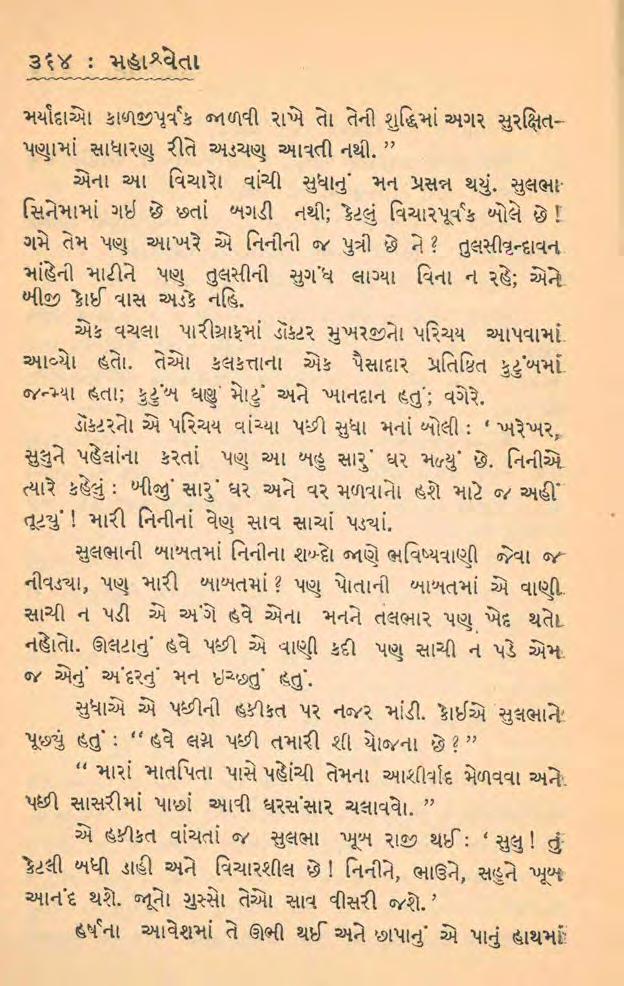 ૩૬૪ : મહાશ્વેતા
મર્યાદાઓ કાળજીપૂર્વક જાળવી રાખે તો તેની શુદ્ધિમાં અગર સુરક્ષિત-
પણામાં સાધારણ રીતે અડચણ આવતી નથી. ”
એના આ વિચારો વાંચી સુધાનું મન પ્રસન્ન થયું. સુલભા
સિનેમામાં ગઇ છે છતાં બગડી નથી; કેટલું વિચારપૂર્વક બોલે છે !
ગમે તેમ પણ આખરે એ નિનીની જ પુત્રી છે ને ? તુલસીવૃન્દાવન
માંહેની માટીને પણ તુલસીની સુગંધ લાગ્યા વિના ન રહે; એને
બીજી કોઈ વાસ અડકે નહિ.
એક વચલા પારીગ્રાફમાં ડૉક્ટર મુખરજીનો પરિચય આપવામાં
આવ્યો હતો. તેઓ કલકત્તાના એક પૈસાદાર પ્રતિષ્ઠિત કુટુંબમાં
જન્મ્યા હતા; કુટુંબ ઘણું મોટું અને ખાનદાન હતું; વગેરે.
ડૉક્ટરનો એ પરિચય વાંચ્યા પછી સુધા મનમાં બોલી : ‘ ખરેખર,
સુલુને પહેલાંના કરતાં પણ આ બહુ સારું ઘર મળ્યું છે. નિનીએ
ત્યારે કહેલું : બીજું સારું ઘર અને વર મળવાનો હશે માટે જ અહીં
તૂટ્યું ! મારી નિનીનાં વેણ સાવ સાચાં પડ્યાં.
સુલભાની બાબતમાં નિનીના શબ્દો જાણે ભવિષ્યવાણી જેવા જ
નીવડ્યા, પણ મારી બાબતમાં ? પણ પોતાની બાબતમાં એ વાણી
સાચી ન પડી એ અંગે હવે એના મનને તલભાર પણ ખેદ થતો
નહોતો. ઊલટાનું હવે પછી એ વાણી કદી પણ સાચી ન પડે એમ
જ એનું અંદરનું મન ઇચ્છતું હતું.
સુધાએ એ પછીની હકીકત પર નજર માંડી. કોઈએ સુલભાને
પૂછ્યું હતું : “ હવે લગ્ન પછી તમારી શી યોજના છે ? ”
“ મારાં માતપિતા પાસે પહોંચી તેમના આશીર્વાદ મેળવવા અને
પછી સાસરીમાં પાછાં આવી ઘરસંસાર ચલાવવો. ”
એ હકીકત વાંચતાં જ સુલભા ખૂબ રાજી થઈ : ‘ સુલુ ! તું
કેટલી બધી ડાહી અને વિચારશીલ છે ! નિનીને, ભાઉને, સહુને ખૂબ
આનંદ થશે. જૂનો ગુસ્સો તેઓ સાવ વીસરી જશે. ’
હર્ષના આવેશમાં તે ઊભી થઈ અને છાપાનું એ પાનું હાથમાં